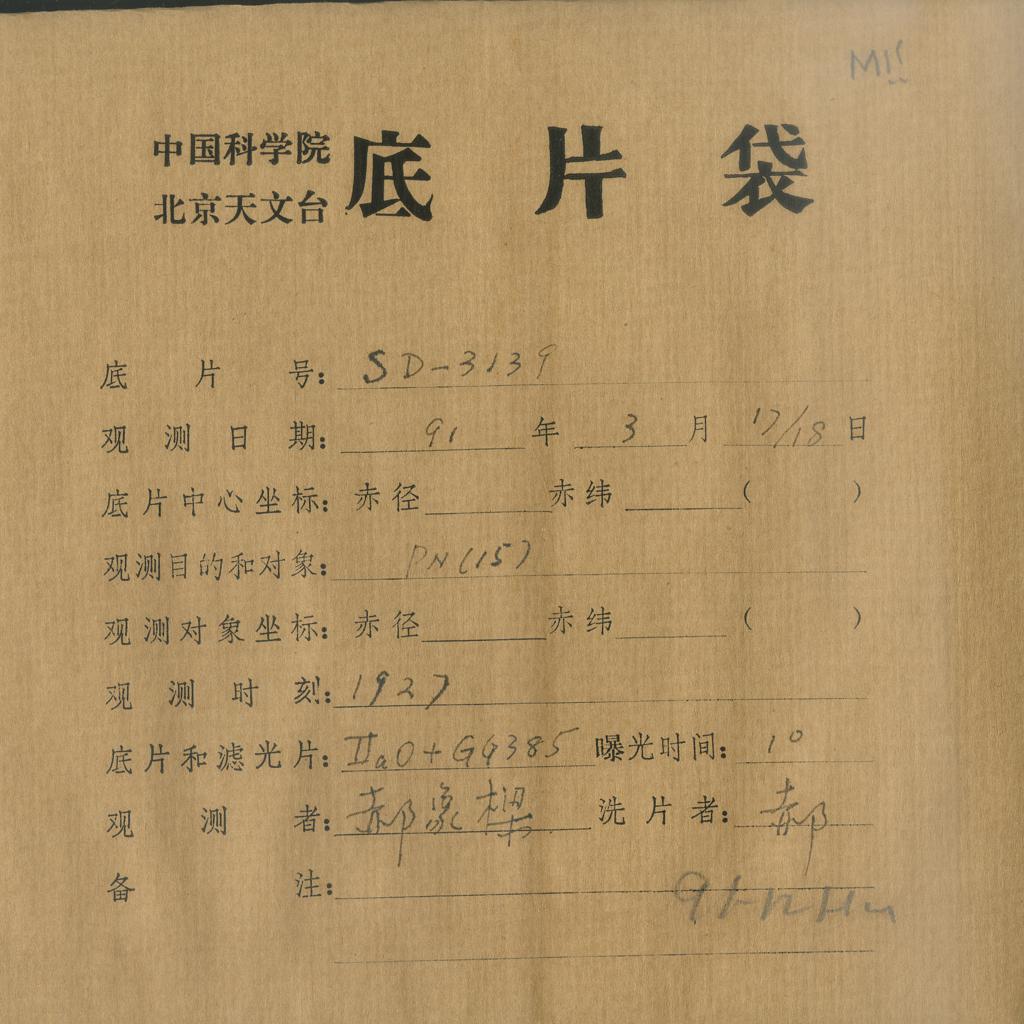 中国科学院
北京天文台
底片袋
底片号: SD-3139
观测日期: 91年3月17/18日
底片中心坐标: 赤径 赤纬 ( )
观测目的和对象: PN(15)
观测对象坐标: 赤径 赤纬 ( )
观测时刻: 1927
底片和滤光片: IIaO+GG385 曝光时间: 10
观测者: 郝象樑 洗片者: 郝
备注: